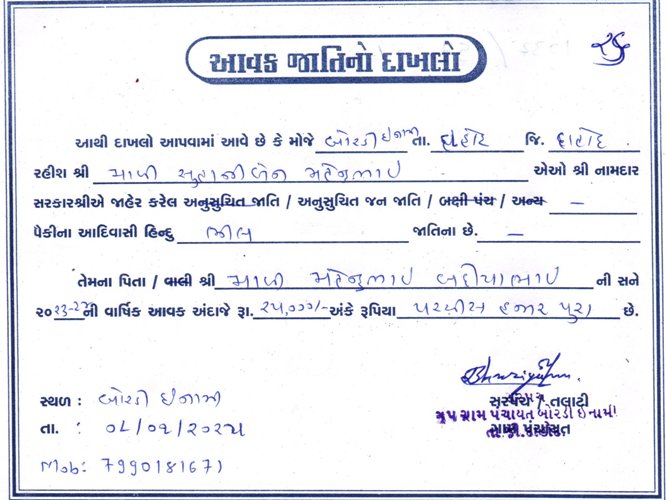 ૨૬
આવક જાતિનો દાખલો
આથી દાખલો આપવામાં આવે છે કે મોજે બોરડી ઇનામી તા. દાહોદ જિ. દાહોદ
રહીશ શ્રી માવી સુહાનીબેન મહેન્દ્રભાઈ એઓ શ્રી નામદાર
સરકારશ્રીએ જાહેર કરેલ અનુસુચિત જાતિ / અનુસુચિત જન જાતિ / બક્ષી પંચ / અન્ય —
પૈકીના આદિવાસી હિન્દુ ભીલ જાતિના છે. —
તેમના પિતા / વાલી શ્રી માવી મહેન્દ્રભાઈ બદીયાભાઈ ની સને
૨૦૨૩-૨૪ની વાર્ષિક આવક અંદાજે રૂા. ૨૫,૦૦૦/- અંકે રૂપિયા પચ્ચીસ હજાર પુરા છે.
સ્થળ : બોરડી ઇનામી
સરપંચ / તલાટી
ગ્રુપ ગ્રામ પંચાયત બોરડી ઇનામી
તા. : ૦૮/૦૧/૨૦૨૫
ગ્રામ પંચાયત
Mob: 7990181671